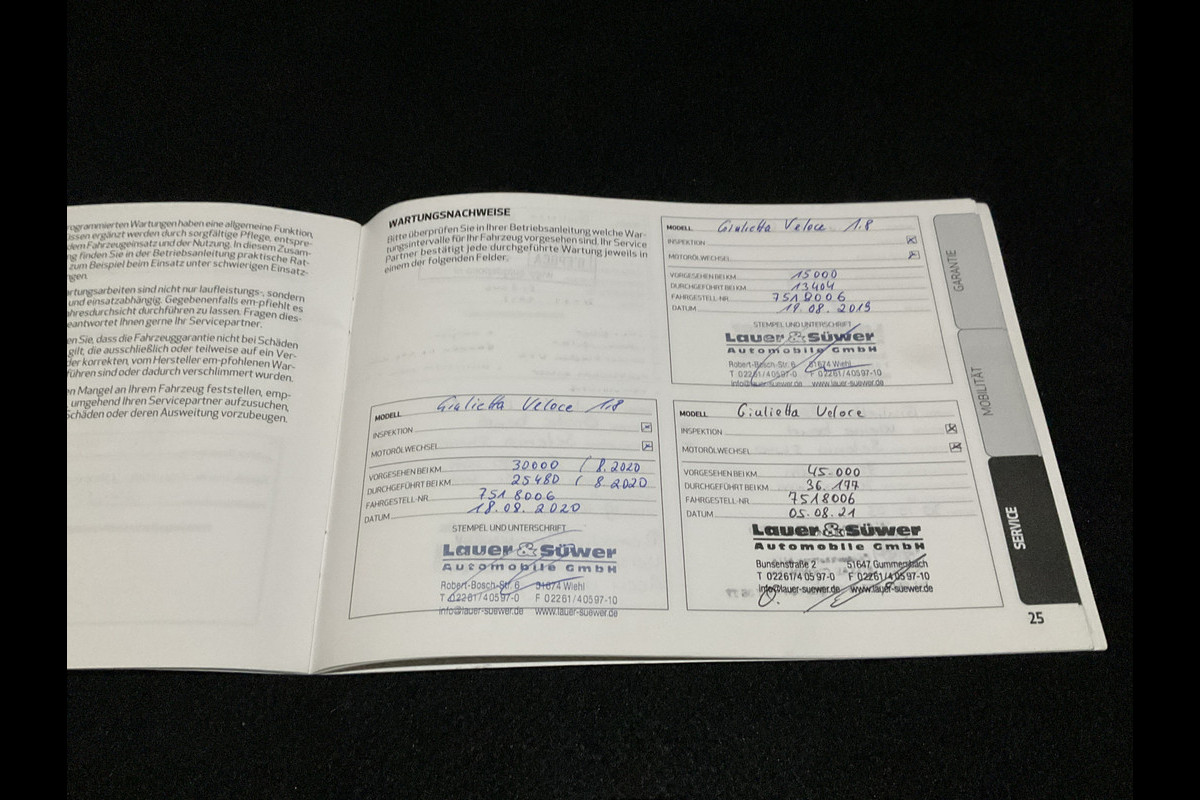 rogrammierten Wartungen haben eine allgemeine Funktion,
ssen ergänzt werden durch sorgfältige Pflege, entspre-
dem Fahrzeugeinsatz und der Nutzung. In diesem Zusam-
g finden Sie in der Betriebsanleitung praktische Rat-
zum Beispiel beim Einsatz unter schwierigen Einsatz-
gen.
rtungsarbeiten sind nicht nur laufleistungs-, sondern
und einsatzabhängig. Gegebenenfalls em-pfiehlt es
hresdurchsicht durchführen zu lassen. Fragen dies-
eantwortet Ihnen gerne Ihr Servicepartner.
en Sie, dass die Fahrzeuggarantie nicht bei Schäden
gilt, die ausschließlich oder teilweise auf ein Ver-
der korrekten, vom Hersteller em-pfohlenen War-
führen sind oder dadurch verschlimmert wurden.
en Mangel an Ihrem Fahrzeug feststellen, emp-
umgehend Ihren Servicepartner aufzusuchen,
Schäden oder deren Ausweitung vorzubeugen.
WARTUNGSNACHWEISE
Bitte überprüfen Sie in Ihrer Betriebsanleitung welche War-
tungsintervalle für Ihr Fahrzeug vorgesehen sind. Ihr Service
Partner bestätigt jede durchgeführte Wartung jeweils in
einem der folgenden Felder.
MODELL Giulietta Veloce 1.8
INSPEKTION
MOTORÖLWECHSEL
VORGESEHEN BEI KM 15000
DURCHGEFÜHRT BEI KM 13404
FAHRGESTELL-NR. 7518006
DATUM 19.08.2019
STEMPEL UND UNTERSCHRIFT
Lauer & Süwer
Automobile GmbH
Robert-Bosch-Str. 6 51674 Wiehl
T 02261/40597-0 F 02261/40597-10
info@lauer-suewer.de www.lauer-suewer.de
MODELL Giulietta Veloce 1.8
INSPEKTION
MOTORÖLWECHSEL
VORGESEHEN BEI KM 30000 / 8.2020
DURCHGEFÜHRT BEI KM 25480 / 8.2020
FAHRGESTELL-NR. 7518006
DATUM 18.08.2020
STEMPEL UND UNTERSCHRIFT
Lauer & Süwer
Automobile GmbH
Robert-Bosch-Str. 6 51674 Wiehl
T 02261/40597-0 F 02261/40597-10
info@lauer-suewer.de www.lauer-suewer.de
MODELL Giulietta Veloce
INSPEKTION
MOTORÖLWECHSEL
VORGESEHEN BEI KM 45.000
DURCHGEFÜHRT BEI KM 36.177
FAHRGESTELL-NR. 7518006
DATUM 05.08.21
Lauer & Süwer
Automobile GmbH
Bunsenstraße 2 51647 Gummersbach
T 02261/40597-0 F 02261/40597-10
info@lauer-suewer.de www.lauer-suewer.de
GARANTIE
MOBILITÄT
SERVICE
25